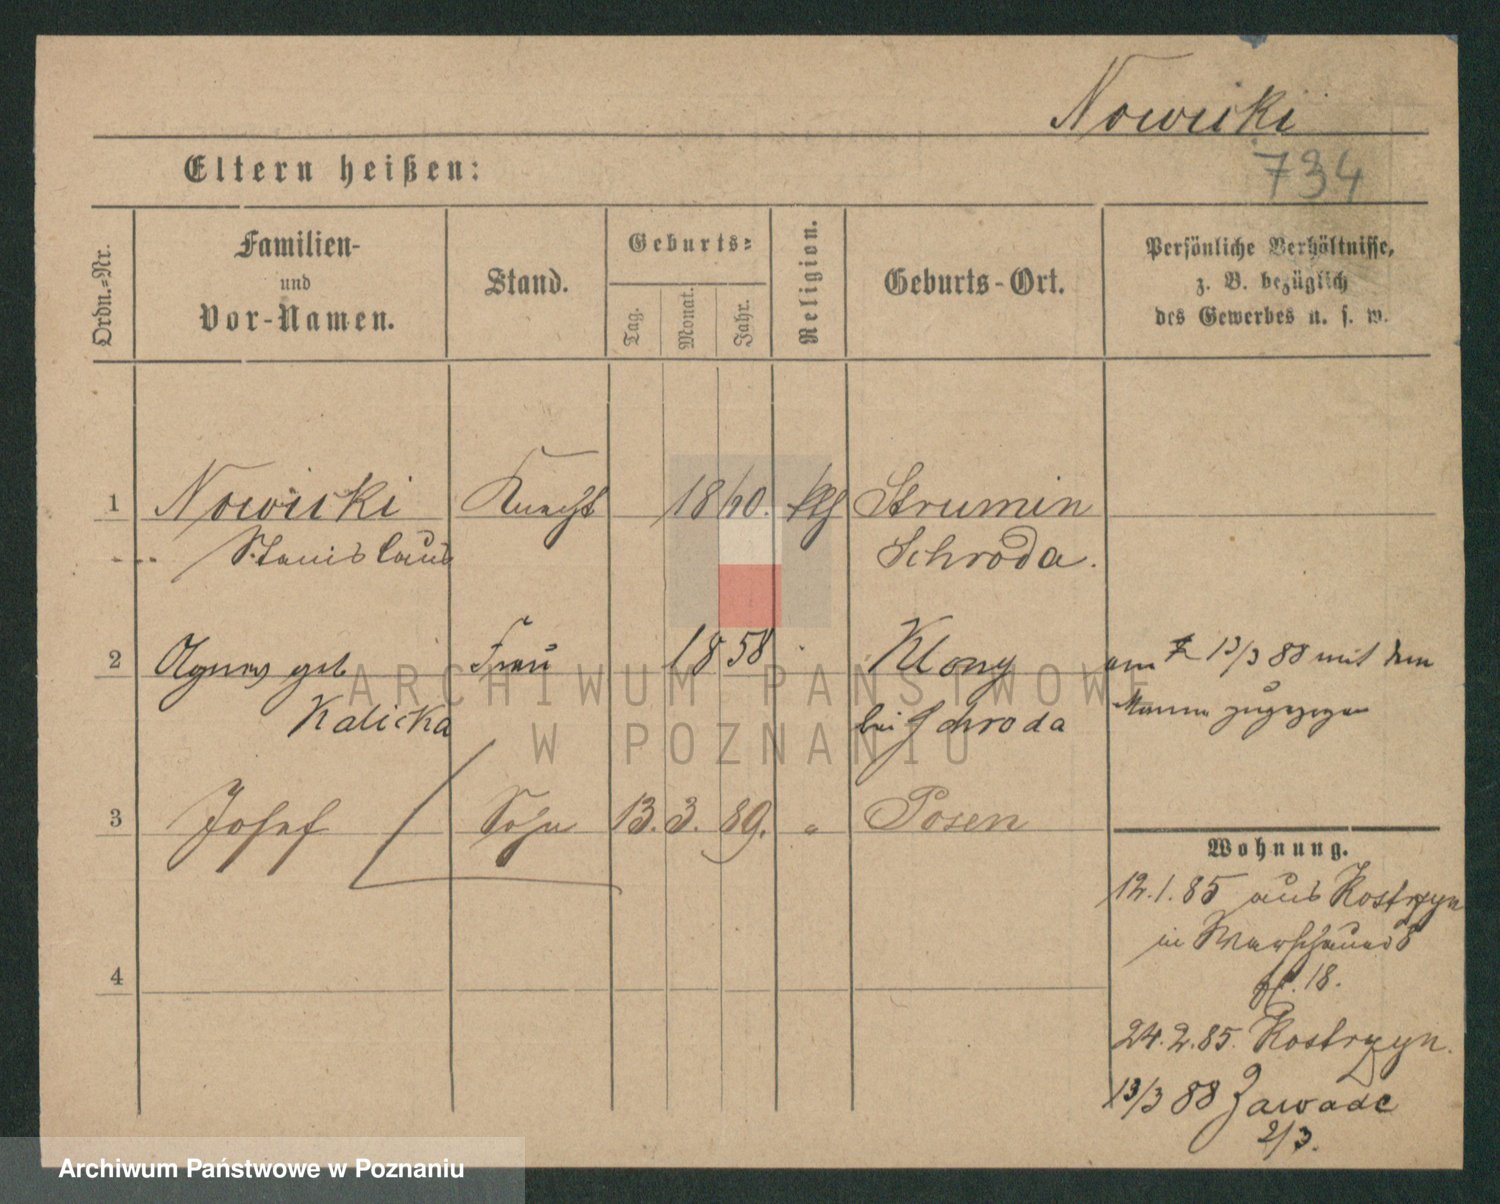 Nowicki
734
Eltern heißen:
Ordn.-Nr.
Familien-
und
Vor-Namen.
Stand.
Geburts-
Tag.
Monat.
Jahr.
Religion.
Geburts-Ort.
Persönliche Verhältnisse,
z. B. bezüglich
des Gewerbes u. s. w.
1 Nowicki Knecht 1860. kth Strumin
Stanislaus Schroda.
2 Agnes geb Frau 1858 Klony am 13/3 88 mit dem
Kalicka bei Schroda Manne zugezogen
3 Josef Sohn 13. 3. 89. " Posen
Wohnung.
12.1.85 aus Kostrzyn
in Warschauer
18.
24.2.85. Kostrzyn.
4
13/3 88 Zawade
2/3.
ARCHIWUM PAŃSTWOWE
W POZNANIU
Archiwum Państwowe w Poznaniu